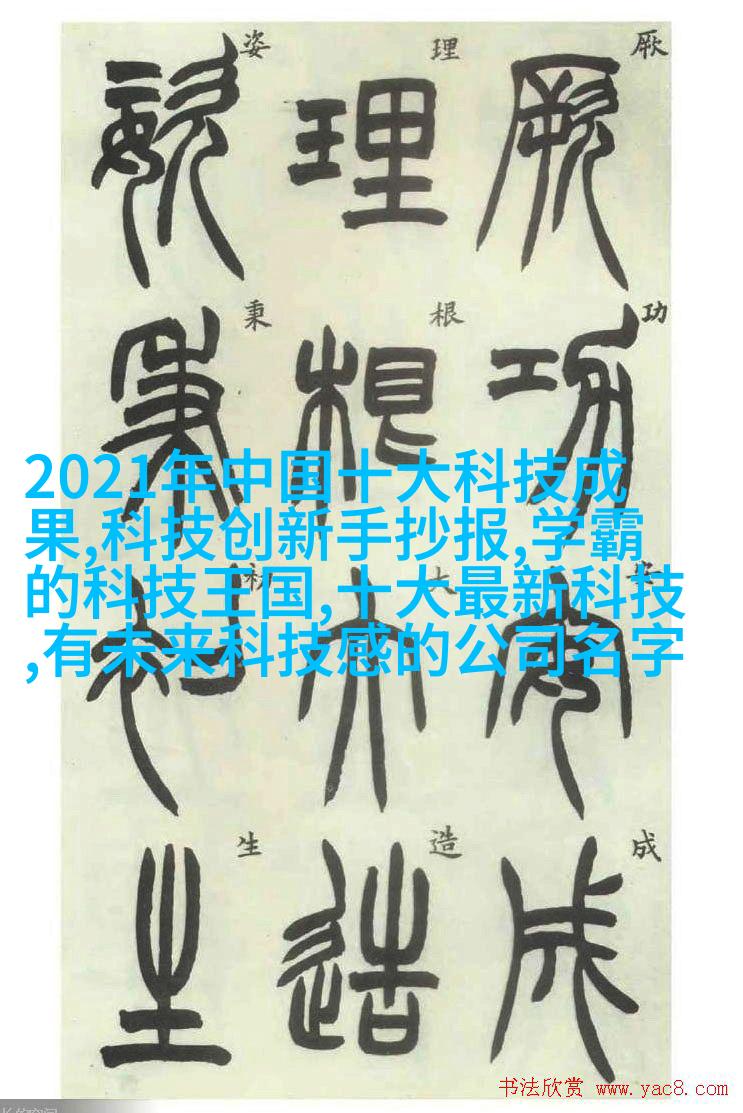 厥功安成
厥功安成
理根大造
理根大造
姿秉初生
姿秉初生
2021年中国十大科技成
果,科技创新手抄报,学霸
的科技王国,十大最新科技
,有未来科技感的公司名字
书法欣赏 www.yac8.com